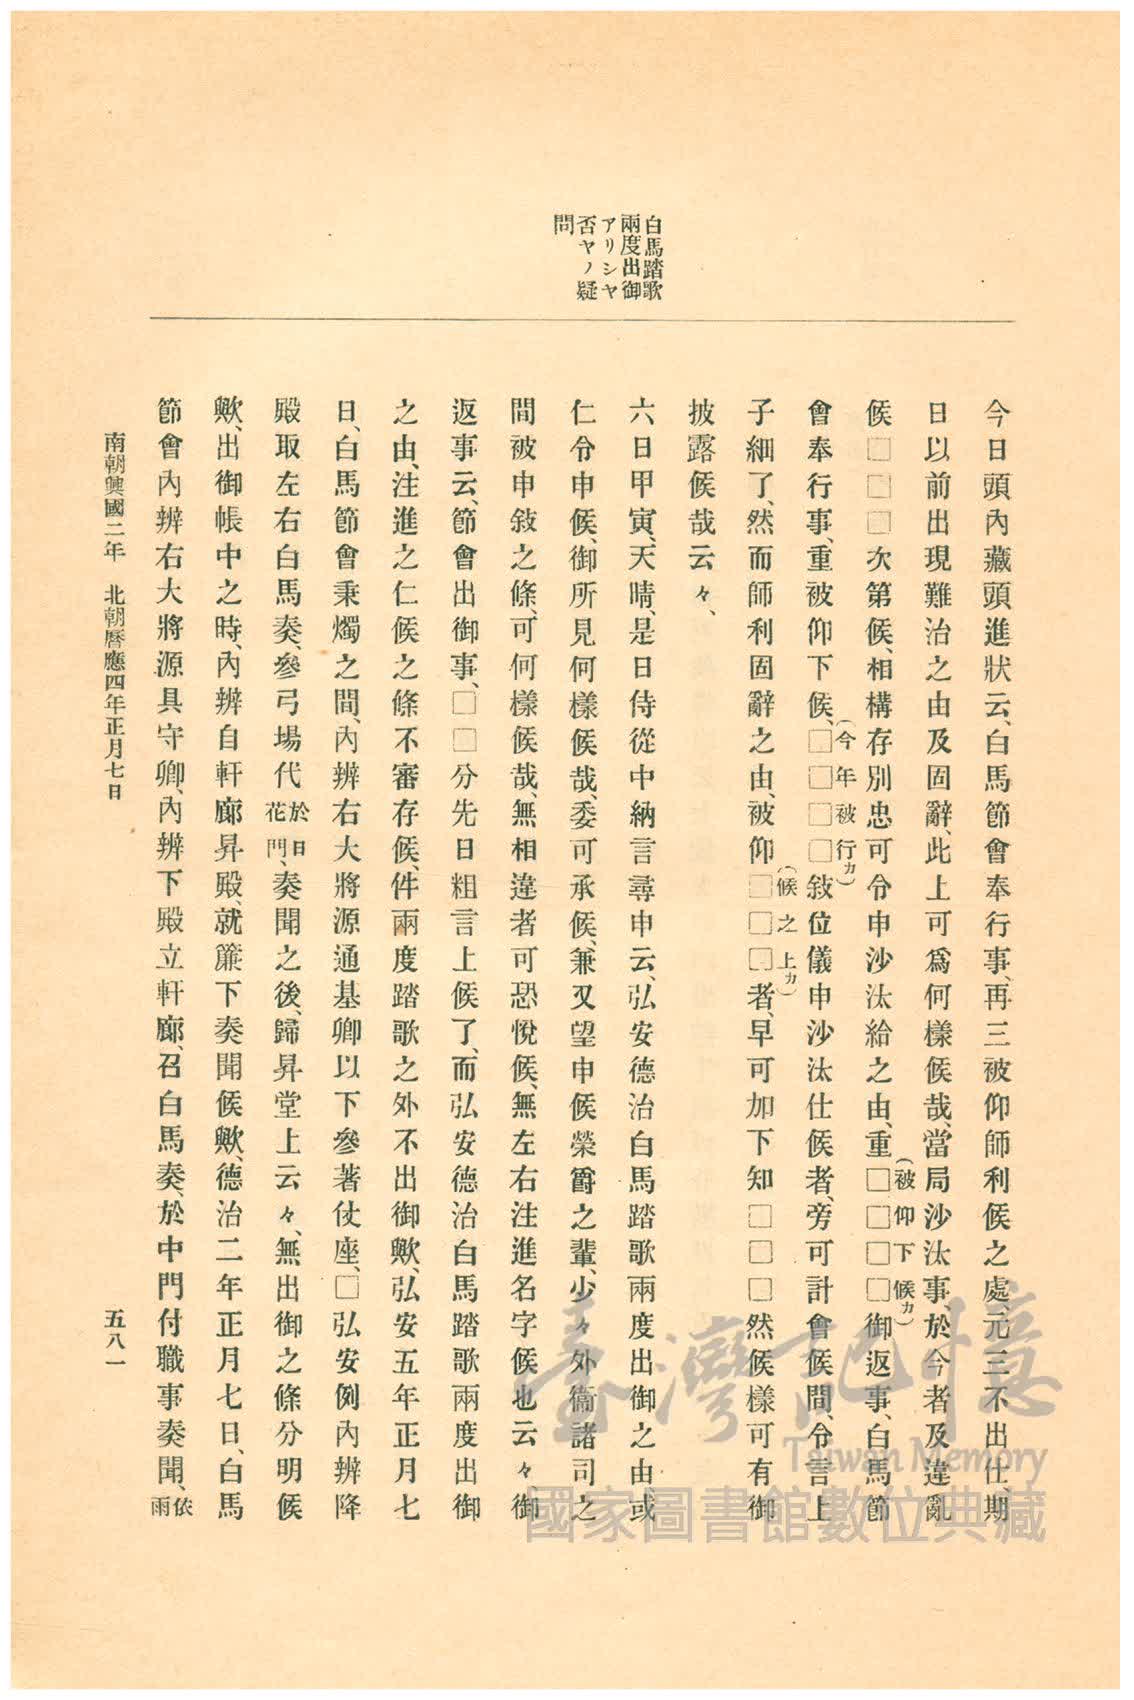 白馬踏歌
兩度出御
アリシヤ
否ヤノ疑
問
今日頭內藏頭、進狀云、白馬節會奉行事、再三被仰師利候之處、元三不出仕、期
日以前出現難治之由及固辭、此上可爲何樣候哉、當局沙汰事、於今者及違亂
候□□□次第候、相構存別忠可令申沙汰給之由、重□□□□(被仰下候カ)御返事、白馬節
會奉行事、重被仰下候、□□□□(今年被行カ)敍位儀申沙汰仕候者、旁可計會候間、令言上
子細了、然而師利固辭之由、被仰□□□(候之上カ)者、早可加下知□□□然候樣可有御
披露候哉云々、
六日甲寅、天晴、是日侍從中納言尋申云、弘安德治白馬踏歌兩度出御之由或
仁令申候、御所見何樣候哉、委可承候、兼又望申候榮爵之輩、少々外衞諸司之
間被申敍之條、可何樣候哉、無相違者可恐悅候、無左右注進名字候也云々、御
返事云、節會出御事、□□分先日粗言上候了、而弘安德治白馬踏歌兩度出御
之由、注進之仁候之條不審存候、件兩度踏歌之外不出御歟、弘安五年正月七
日、白馬節會秉燭之間、內辨右大將源通基卿以下參著仗座、□弘安例內辨降
殿取左右白馬奏、參弓場代於日花門、奏聞之後、歸昇堂上云々、無出御之條分明候
歟、出御帳中之時、內辨自軒廊昇殿、就簾下奏聞候歟、德治二年正月七日、白馬
節會內辨右大將源具守卿、內辨下殿立軒廊、召白馬奏、於中門付職事奏聞、依雨
南朝興國二年　北朝曆應四年正月七日
五八一
臺灣記憶
Taiwan Memory
國家圖書館數位典藏